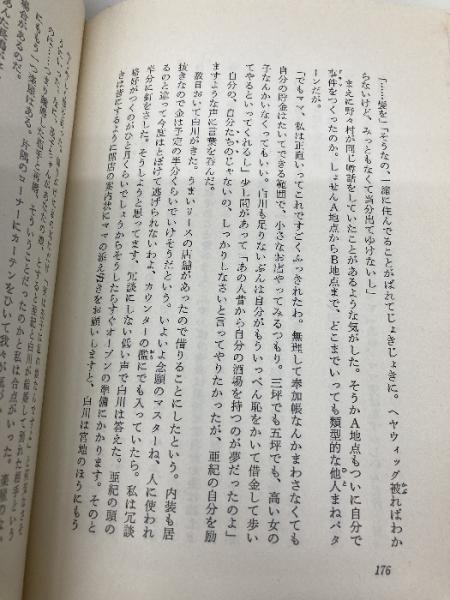 「……髪を」「そうなの、一緒に住んでることがばれてじょきじょきに。ヘヤウィッグ被ればわか
らないけど、みっともなくて当分出てゆけないし」
まえに野々村が同じ噂話をしていたことがあるような気がした。そうかA地点もついに自分で
事件をつくったのか。しょせんA地点からB地点まで、どこまでいっても類型的な他人まねパタ
ーンだが。
「でもママ、私は正直いってこれですごくふっきれたわ。無理して奉加帳なんかまわさなくても
自分の貯金はたいてできる範囲で、小さなお店やってみるつもり。三坪でも五坪でも、高い女の
子なんかいなくってもいい。白川も足りないぶんは自分がもういっぺん恥をかいて借金して歩い
てやるといってくれるし」少し間があって「あの人昔から自分の酒場を持つのが夢だったのよ」
自分の、自分たちのじゃないの、しっかりしなさいと言ってやりたかったが、亜紀の自分を励
ますような声に言葉を呑んだ。
数日おいて白川がきた。うまいリースの店舗があったので借りることにしたという。内装も居
抜きなので金は予定の半分くらいでいけそうだという。いよいよ念願のマスターね、人に使われ
るのと違って今度はとぼけて逃げられないわよ、カウンターの檻にでも入っていたら。私は冗談
半分に釘をさした。そうしようと思ってます、冗談にしない低い声で白川は答えた。亜紀の頭の
格好がつくのがひと月くらいでしょうからそうしたらすぐオープンの準備にかかります。そのと
きは皆にするように開店の案内状にママの添え書きをお願いしますと、白川は宮地のほうにもう
176
場合があるのだ。